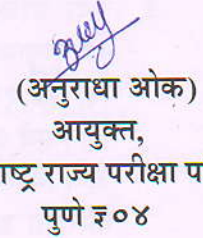 (अनुराधा ओक)
आयुक्त,
राज्य परीक्षा
पुणे ₹०४